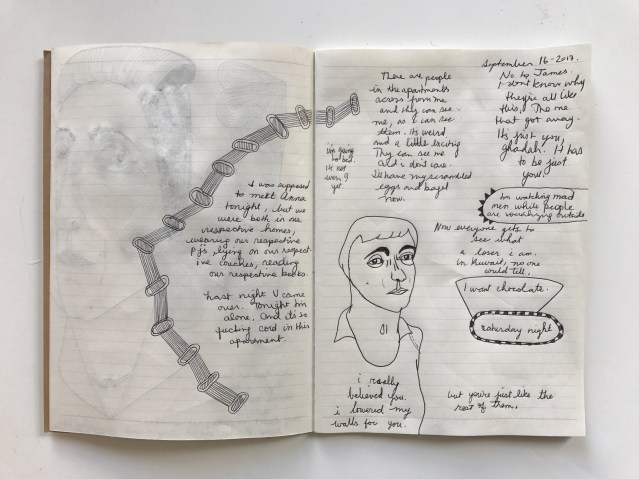 I was supposed
to meet Anna
tonight, but we
were both in our
respective homes,
wearing our respective
Pjs, lying on our respect
ive couches, reading
our respective books.
Last night V came
over. Tonight I'm
alone. And it's so
fucking cold in this
apartment.
There are people
in the apartments
across from me
and they can see
me, as I can see
them. Its weird
and a little exciting
They can see me
and i dont care.
I'll have my scrambled
eggs and bagel
now.
im going
to bed.
Its not
even 9
yet.
September 16-2017.
No to James
I dont know why
they're all like
this! The one
that got away.
Its just you,
ghadah. It has
to be just
you!
Im watching mad
men while people
are socializing outside
Now everyone gets to
see what
a loser i am.
in Kuwait, no one
could tell.
I want chocolate.
saturday night
i really
believed you.
i lowered my
walls for you.
but you're just like the
rest of them.